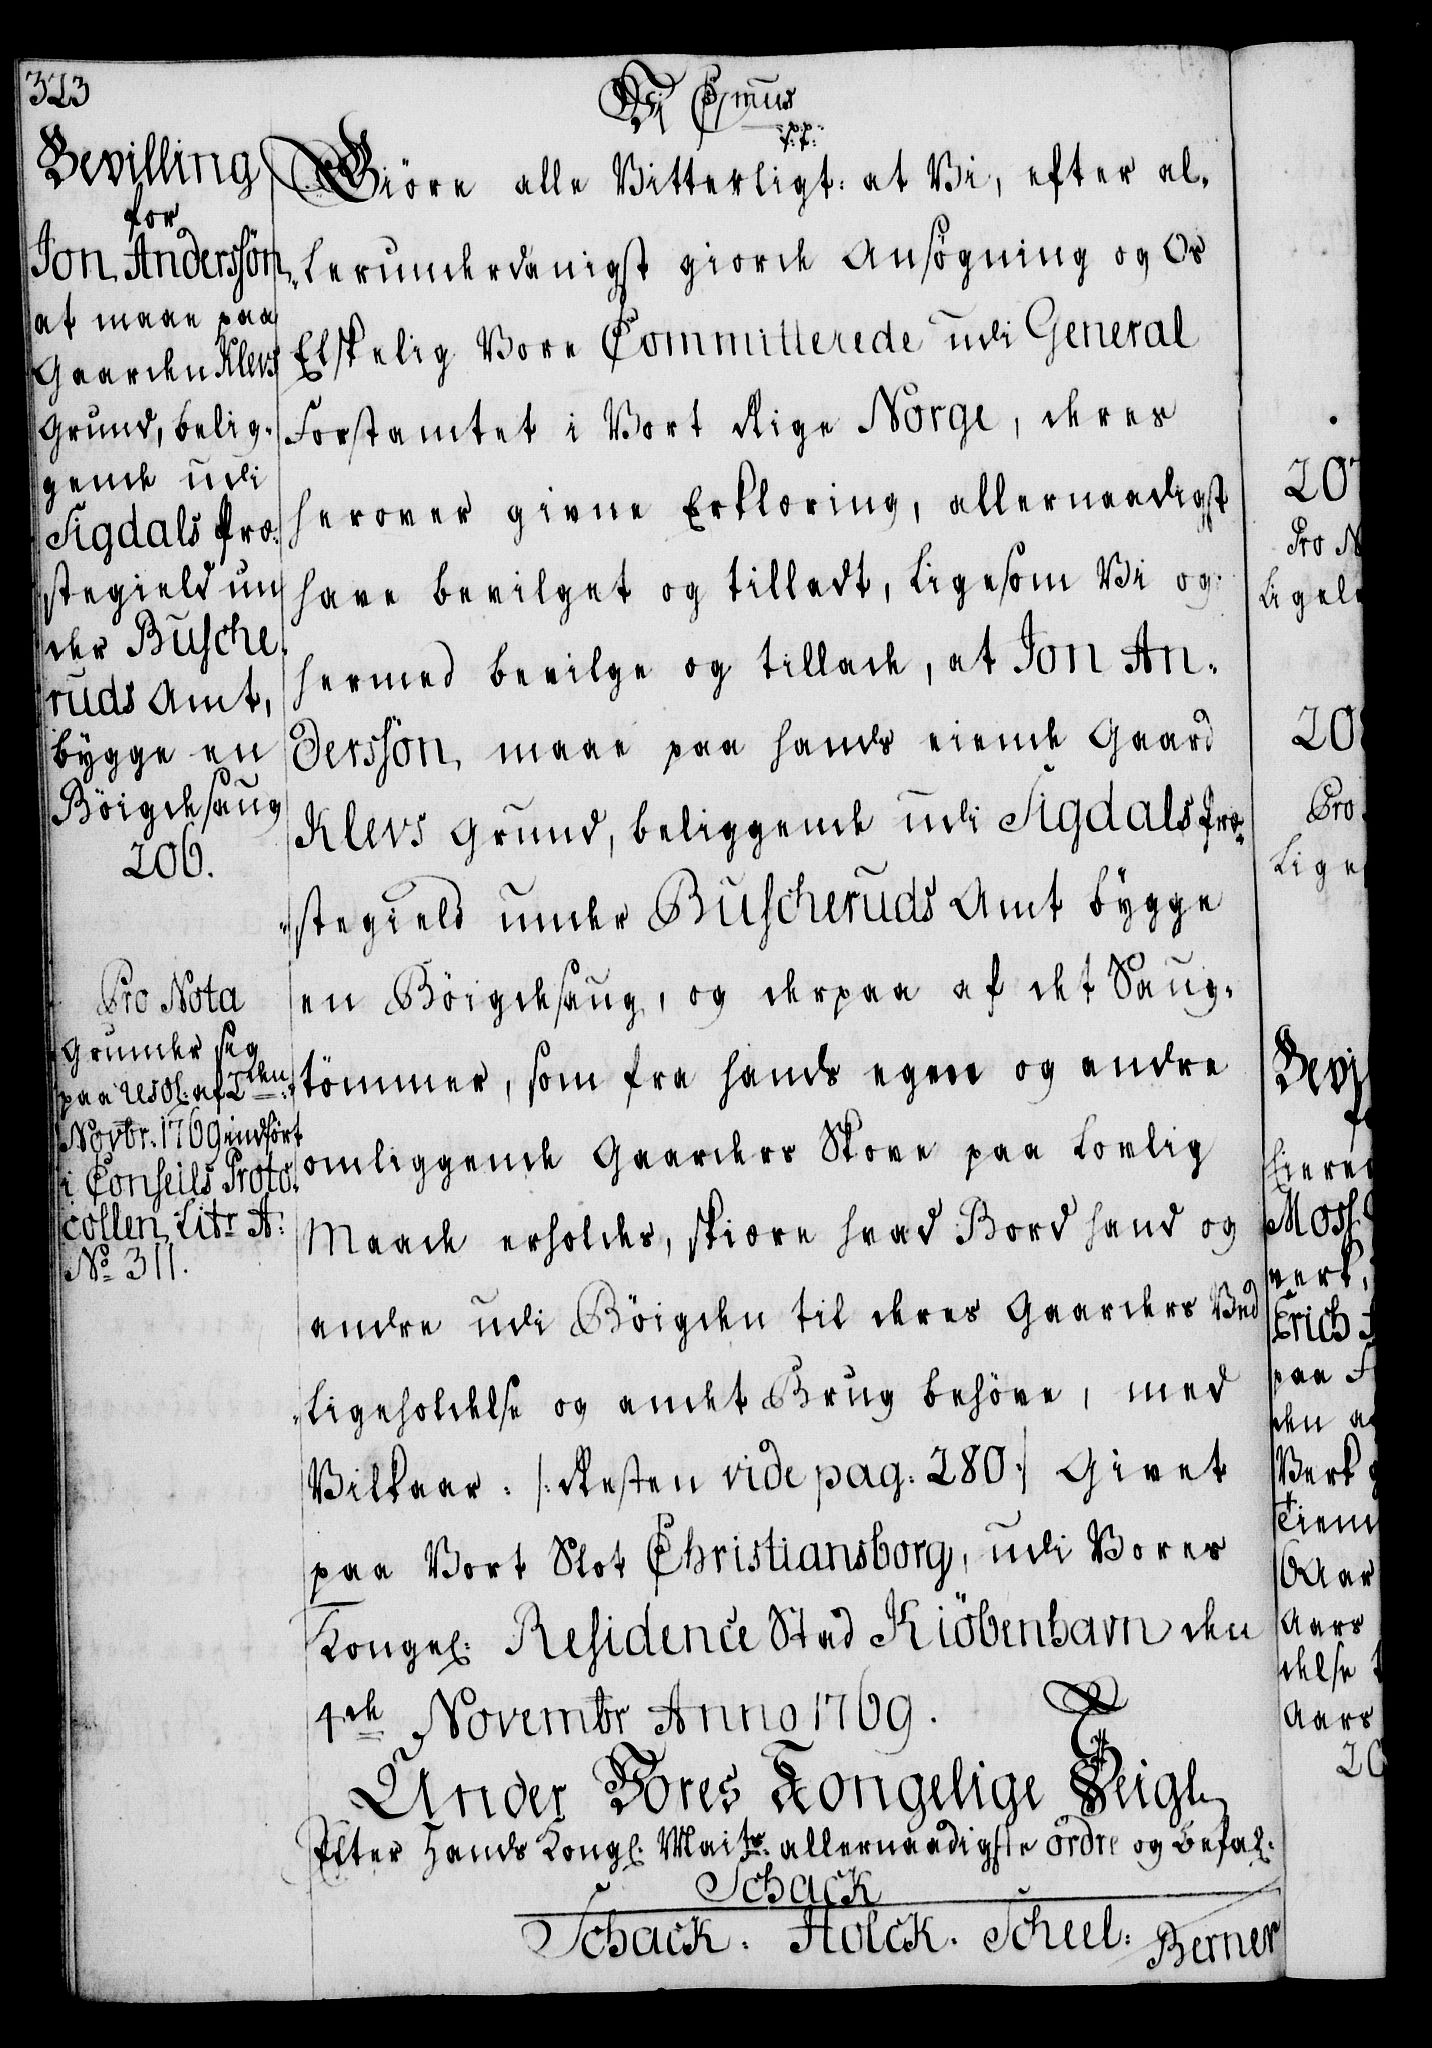 323
Bevilling
for
Jon Anderssön
at maae paa
Gaarden Klevs
Grund, belig-
gende udi
Sigdals Præ-
stegield un
der Busche-
ruds Amt,
bygge en
Böigdesaug
206.
Pro Nota
Grunder sig
paa Resol: af 2den
Novbr. 1769 indfört
i Conseils Proto-
collen Litr A:
No 311.
Vi C 7mus
p: p:
Giöre alle Vitterligt: at Vi, efter al-
lerunderdanigst giorde Ansögning og Os
Elskelig Vore Committerede udi General
Forstamtet i Vort Rige Norge, deres
herover givne Erklæring, allernaadigst
have bevilget og tilladt, ligesom Vi og
hermed bevilge og tillade, at Jon An-
dersson, maae paa hands eiende Gaard
Klevs Grund, beliggende udi Sigdals Præ-
stegield under Buscheruds Amt bygge
en Böigdesaug, og derpaa af det Saug-
tömmer, som fra hands egne og andre
omliggende Gaarders Skove paa lovlig
Maade erholdes, skiære hvad Bord hand og
andre udi Böigden til deres Gaarders Ved
ligeholdelse og andet Brug behöve, med
Vilkaar: /: Resten vide pag: 280 :/ Givet
paa Vort Slot Christiansborg, udi Vores
Kongel: Residence Stad Kiöbenhavn den
4de Novembr Anno 1769.
Under Vores Kongelige Seigl
Efter Hands Kongl: Maits: allernaadigste ordre og Befal:
Schack
Schack. Holck. Scheel. Berner
207
Pro N
Ligele
208
Pro
Lige
Bevi
f
Eiere
Moss
verk,
Erich
paa F
den a
Verk
Tiem
6 Aar
Aars
delse
Aars
20